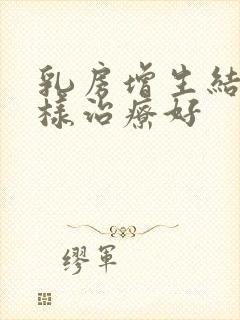 乳房增生結
樣治療好
缪軍